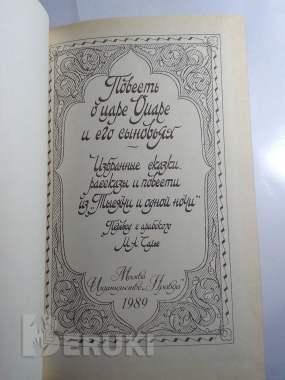 Повесть
о царе Омаре
и его сыновьях
Избранные сказки,
рассказы и повести
из „Тысячи и одной ночи"
Перевод с арабского
М. А. Салье
Москва
Издательство „Правда"
1989
BERUKI